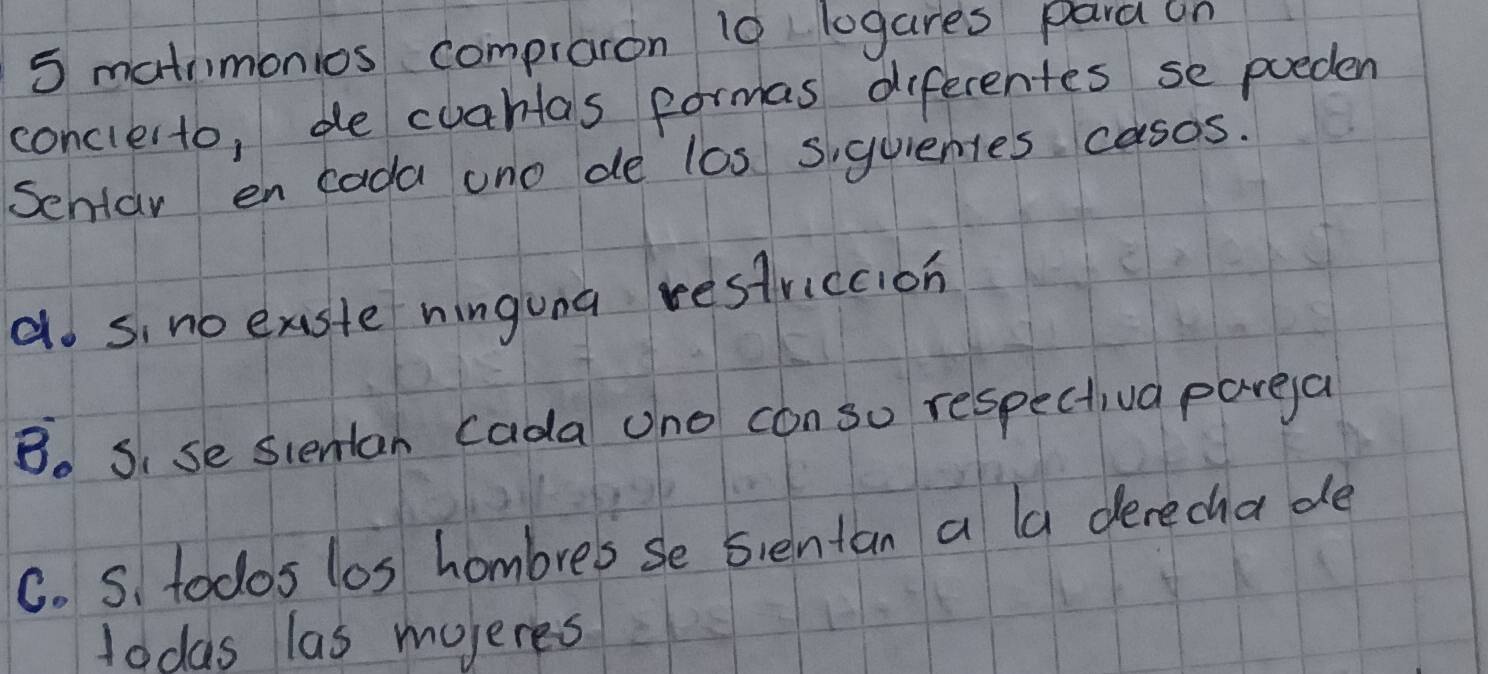 5 matrimonios compraron 10 lugares para un
concierto, de cuantas formas diferentes se pueden
Sentar en cada uno de los siguientes casos.
a. si no existe ninguna restricción
B. si se sientan cada uno con su respectiva pareja
C. Si todos los hombres se sientan a la derecha de
todas las mujeres